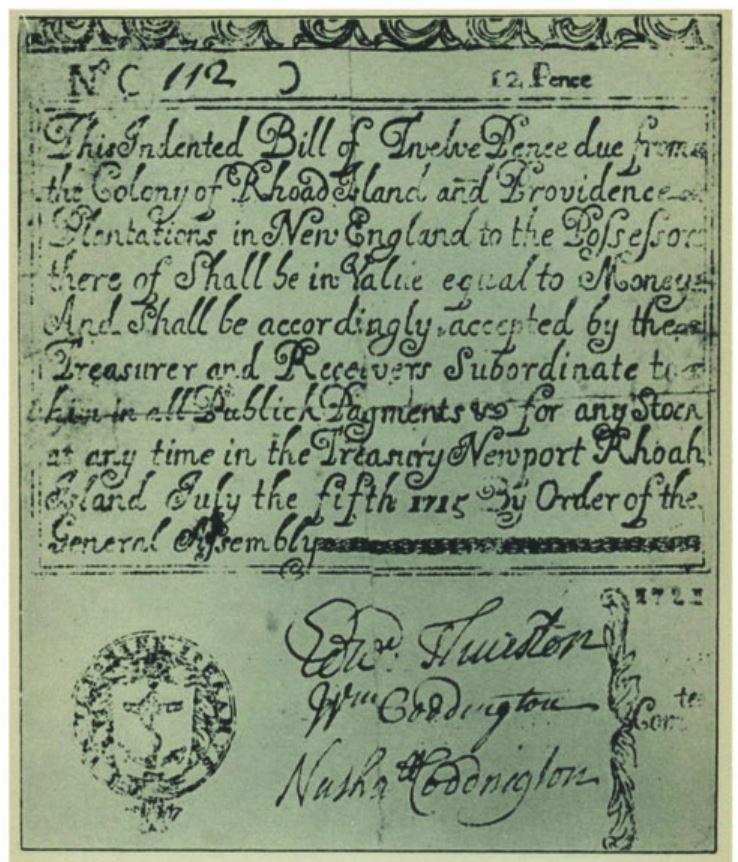 No ( 112 ) 12 Pence
This Indented Bill of Twelve Pence due from
the Colony of Rhoad Island and Providence
Plantations in New England to the Possessor
there of Shall be in Value equal to Money
And Shall be accordingly accepted by the
Treasurer and Receivers Subordinate to
him in all Publick Payments & for any Stock
at any time in the Treasury Newport Rhoah
Island July the fifth 1715 By Order of the
General Assembly
1721
Edwd. Thurston
Wm Coddington
Com te
Natha ll Coddington